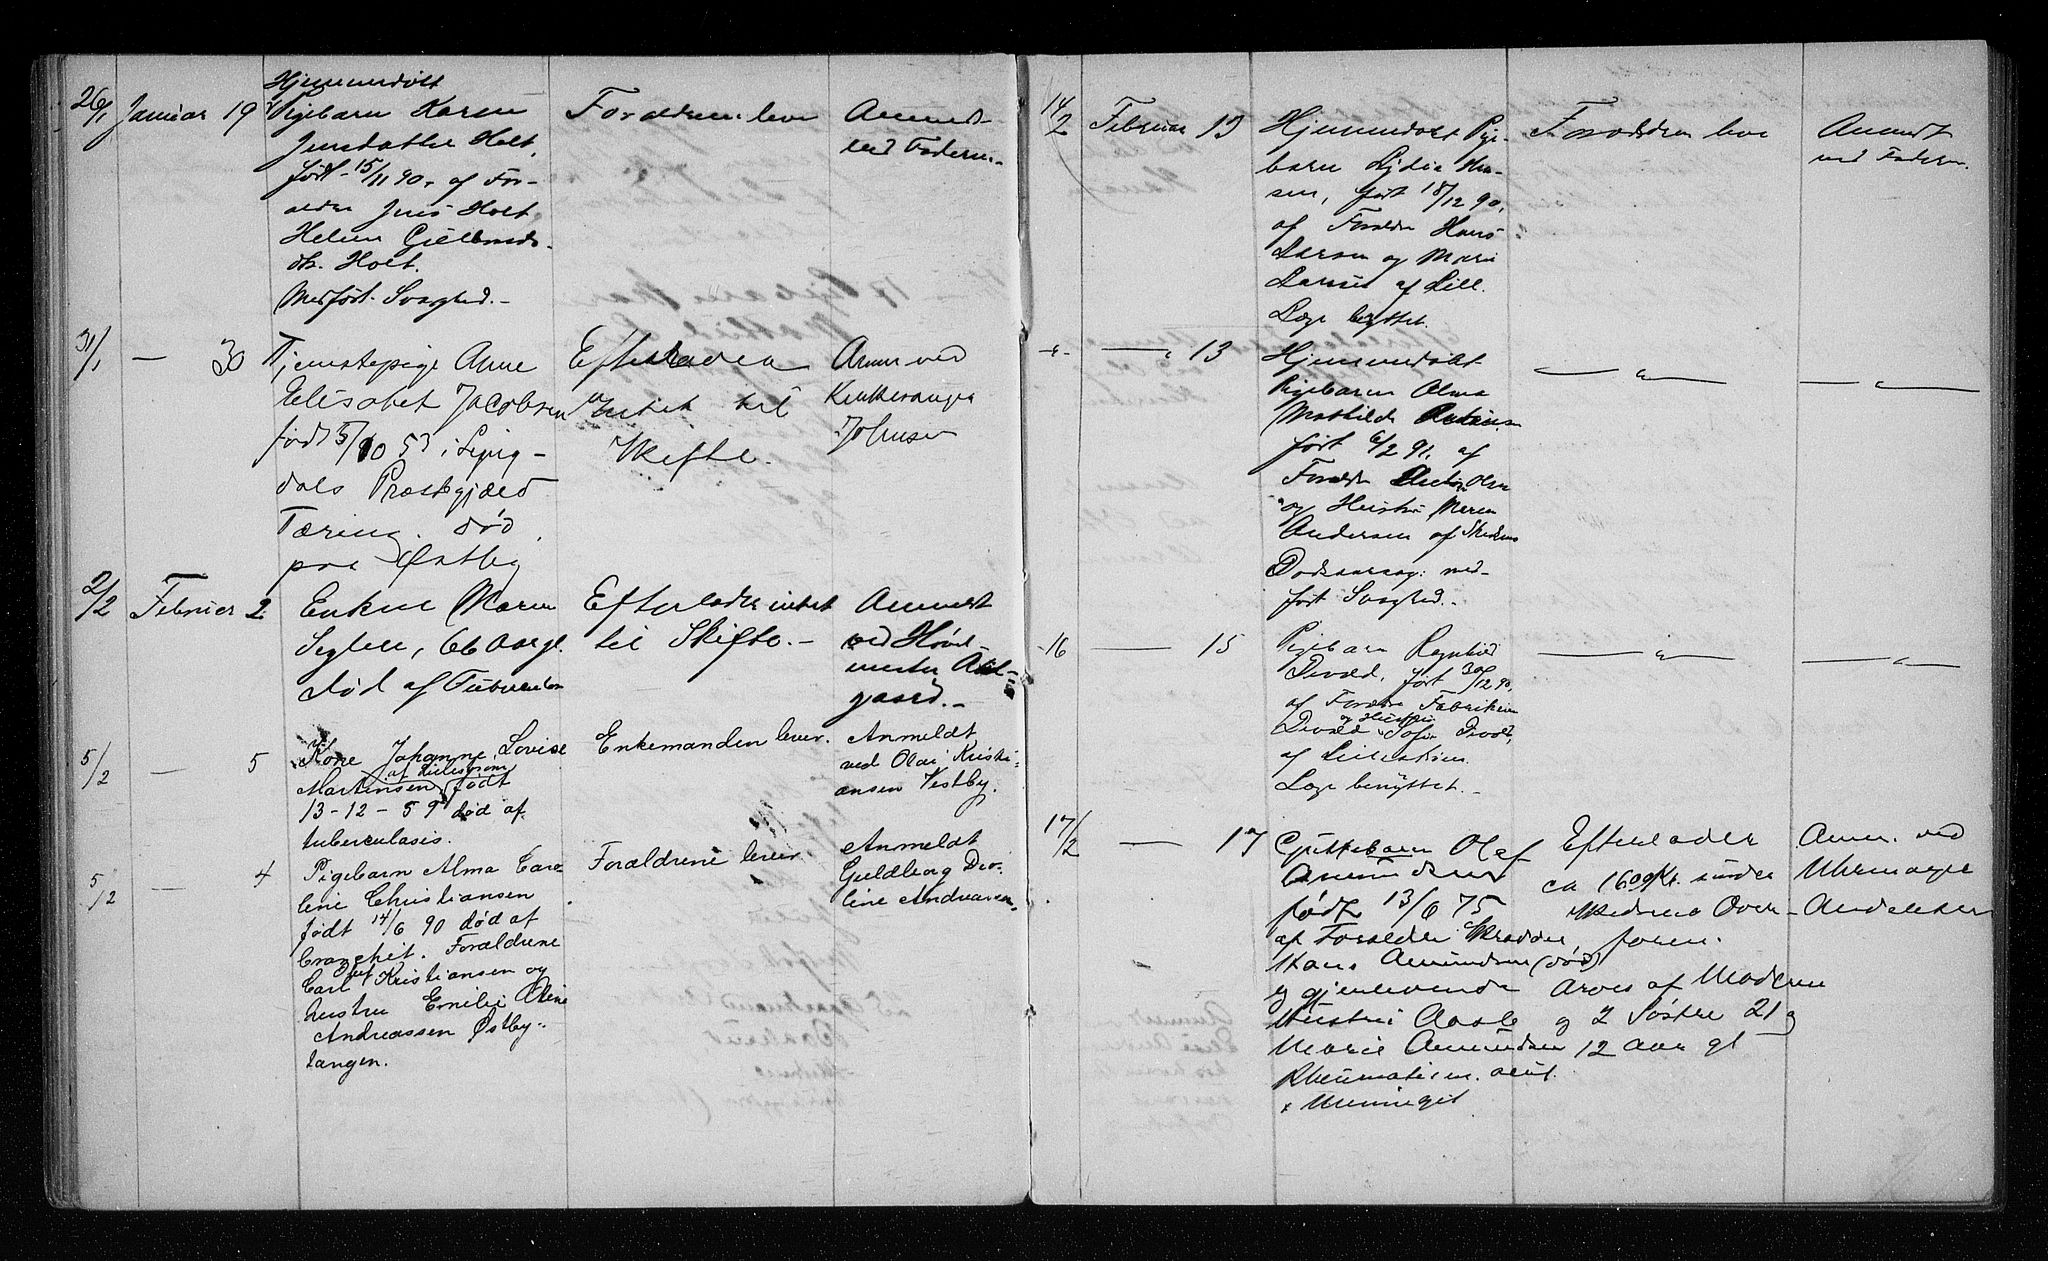 Hjemmedøbt
26/1 Januar 19 Pigebarn Karen
Jensdatter Holt,
født 15/11 90. af For-
ældre Jens Holt
Helene
Holt.
Medfødt Svaghed.-
Forældrene lever
Anmeldt
ved Faderen.-
31/1 — 30 Tjenstepige Anne
Elisabet Jacobsen
født 5/10 53 i
dals Præstegjæld
Tæring. død
paa Østby
Efterlader
Intet til
Skifte.
Anm. ved
Kirkesanger
Johnsen
2/2 Februar 2. Enken Maren
66 Aar gl.
død af Tuberculose
Efterlader intet
til Skifte.-
Anmeldt
ved
gaard.-
5/2 — 5 Kone Johanne Lovise
af Lillestrøm
Martinsen født
13-12-59 død af
tuberculosis.
Enkemanden lever.
Anmeldt
ved Olai Kristi-
ansen Vestby.
5/2 — 4 Pigebarn Alma Caro-
line Christiansen
født 14/6 90 død af
Forældrene
Carl Kristiansen og
hustru Emilie Oline
Andreassen Østby-
tangen.
Forældrene lever
Anmeldt
Guldborg Dio-
line Andreassen.
14/2 Februar 13 Hjemmedøbt Pige-
barn Lydia Han-
sen, født 18/12 90,
af Forældre Hans
Larsen og Marie
Larsen af Lill.
Læge benyttet.
Forældrene leve
Anmeldt
ved Faderen.
-"- — 13 Hjemmedøbt
Pigebarn Olma
Mathilde Antonsen
født 6/2 91, af
Forældre Anton Olsen
og Hustru Maren
Andersen af Skedsmo
Dødsaarsag: med-
født Svaghed.-
— " —
— " —
16 — 15 Pigebarn Ragnhild
Devold, født 30/12 90,
af Forældre Fabrikeier
og Hustru
Devold Sofie Devold,
af Lillestrøm.
Læge benyttet.-
— " —
— " —
17/2 — 17 Guttebarn Olaf
Amundsen
født 13/6 75
af Forældre Skrædder
Hans Amundsen (død)
og gjenlevende
Hustru Aasle
Marie Amundsen
Rheumatism. acut.
Efterlader
ca 1600 Kr. under
Skedsmo Over-
form.
Arves af Moderen
og 2 Søstre 21 og
12 Aar gl
Anm. ved
Uhrmager